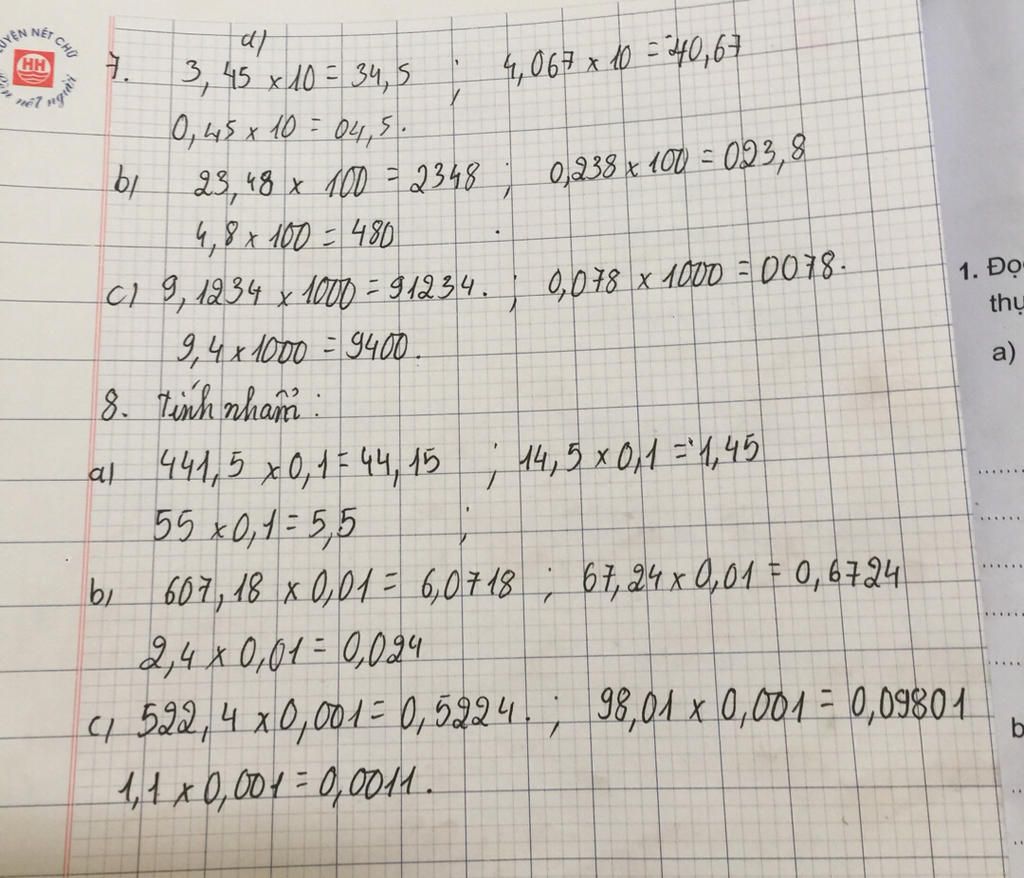 LUYỆN NÉT CHỮ
HH
Rèn nết người
a)
7. 3,45 x 10 = 34,5 ; 4,067 x 10 = 40,67
0,45 x 10 = 04,5.
b) 23,48 x 100 = 2348 ; 0,238 x 100 = 023,8
4,8 x 100 = 480
c) 9,1234 x 1000 = 91234. ; 0,078 x 1000 = 0078.
9,4 x 1000 = 9400.
8. Tính nhẩm :
a) 441,5 x 0,1 = 44,15 ; 14,5 x 0,1 = 1,45
55 x 0,1 = 5,5 ;
b) 607,18 x 0,01 = 6,0718 ; 67,24 x 0,01 = 0,6724
2,4 x 0,01 = 0,024
c) 522,4 x 0,001 = 0,5224. ; 98,01 x 0,001 = 0,09801
1,1 x 0,001 = 0,0011.
1. Đọ
thự
a)
b